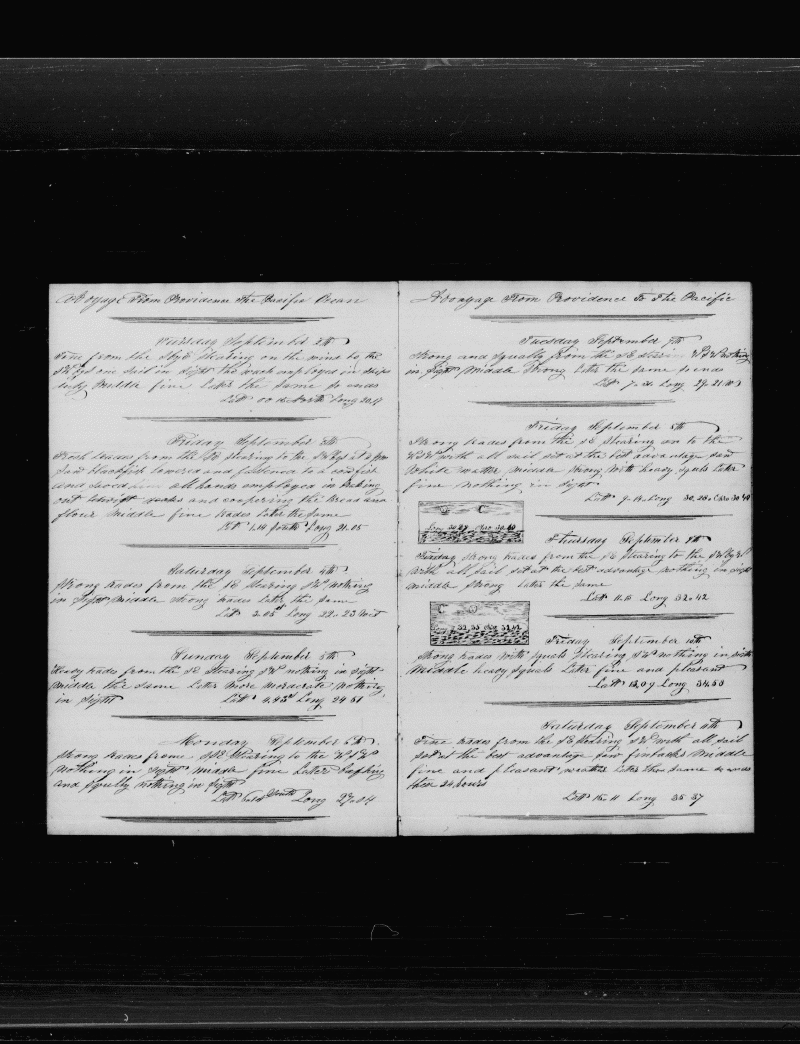 A Voyage From Providence the Pacific Ocean
Thursday September 2th
Fine from the SbyE Stearing on the wind by the
one sail in sight the wach employed in
middle fine Later the same so ends
Latt 00 North Long 20.
Friday September 3th
trades from the SE Stearing to the
Saw blackfish lowered and fastened to a
and all hands employed in breaking
out and coopering the bread and
flour middle fine trades later the same
Latt 1.14 South Long 21.05
Saturday September 4th
Strong trades from the SE Stearing SW nothing
in sight middle strong trades later the same
Latt 3.05 Long 22.23 West
Sunday September 5th
Steady trades from the SE Stearing SW nothing in sight
Middle the same Later more moderate nothing
in sight Latt 4.45 Long 24 51
Monday September 6th
Strong trades from SE Stearing to the
Nothing in sight middle fine Later
and squaly nothing in sight
Latt South Long 27.04
A voyage From Providence To The Pacific
Tuesday September 7th
Strong and squaly from the SE nothing
in sight Middle Strong later the same so ends
Latt 7. Long 29.21
Friday September 8th
Strong trades from the SE Stearing on to the
with all sail set at the best advantage saw
White watter middle strong with heavy squals Later
fine nothing in sight
Latt 9.14 Long 30.28 Chro 30.40
Long 30.28 Chro 30.40
Thursday September 9th
strong trades from the SE Stearing to the
with all sail set at the best advantage nothing in sight
middle strong later the same
Latt 11.15 Long 32.42
Friday September 10th
Strong trades with squals Stearing nothing in sight
Middle heavy squals Later fine and pleasant
Latt 13.09 Long 34.53
Saturday September 11th
Fine trades from the SE Stearing SW with all sail
set at the best advantage saw finbacks Middle
fine and pleasant weather later the same so ends
these 24 hours
Latt 15.11 Long 35 57